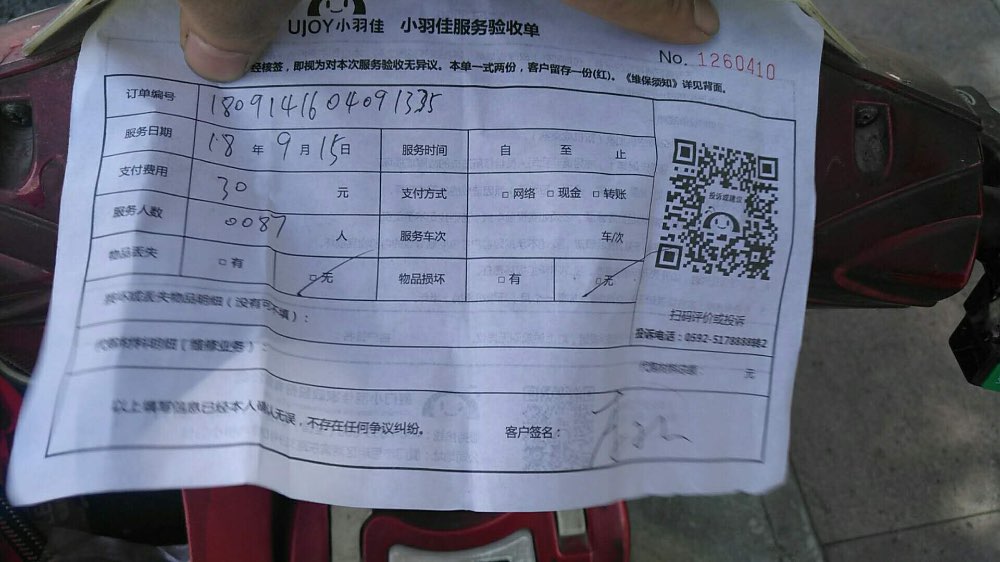 UJOY小羽佳 小羽佳服务验收单
No. 1260410
经核签，即视为对本次服务验收无异议。本单一式两份，客户留存一份(红)。《维保须知》详见背面。
订单编号 1809141604091335
服务日期 18 年 9 月 15 日 服务时间 自 至 止
支付费用 30 元 支付方式 □网络 □现金 □转账
服务人数 0087 人 服务车次 车次
物品丢失 □有 □无 物品损坏 □有 □无
投诉或建议
扫码评价或投诉
投诉电话：0592-5178888转2
损坏或丢失物品明细（没有可不填）：
代客材料明细（维修业务）：
元
以上填写信息已经本人确认无误，不存在任何争议纠纷。 客户签名：